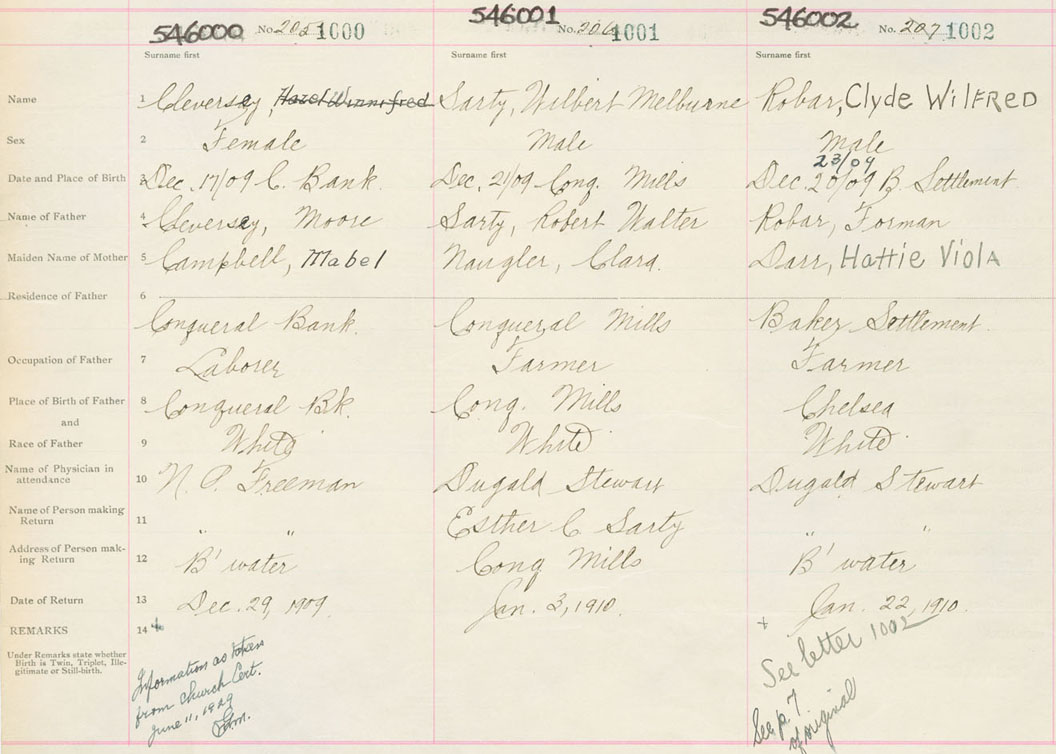 546000 No. 205 1000 546001 No. 206 1001 546002 No. 207 1002
Surname first Surname first Surname first
Name 1 Cleversey, Hazel Winnifred Sarty, Wilbert Melburne Robar, Clyde WilFRED
Sex 2 Female Male Male
23/09
Date and Place of Birth 3 Dec. 17/09 C. Bank. Dec. 21/09 Cong. Mills Dec. 20/09 B. Settlement
Name of Father 4 Cleversey, Moore Sarty, Robert Walter Robar, Forman
Maiden Name of Mother 5 Campbell, Mabel Naugler, Clara. Darr, Hattie Viola
Residence of Father 6
Conqueral Bank. Conqueral Mills Baker Settlement.
Occupation of Father 7 Laborer Farmer Farmer
Place of Birth of Father 8 Conqueral Bk. Conq. Mills Chelsea
and
Race of Father 9 White White White
Name of Physician in
attendance 10 N. P. Freeman Dugald Stewart Dugald Stewart
Name of Person making
Return 11 " " Esther C Sarty " "
Address of Person mak-
ing Return 12 B'water Conq Mills B'water
Date of Return 13 Dec. 29, 1909. Jan. 3, 1910. Jan. 22, 1910.
REMARKS 14 + +
Under Remarks state whether
Birth is Twin, Triplet, Ille-
gitimate or Still-birth.
Information as taken
from Church Cert.
June 11, 1929
See letter 1002
See p. 7
of original